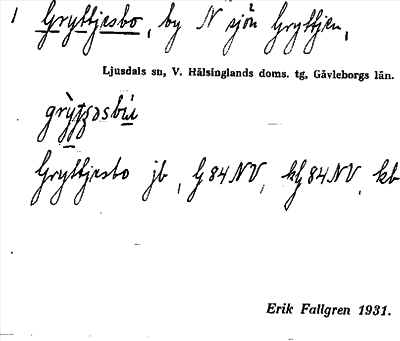 1 Gryttjesbo, by N sjön Gryttjen,
Ljusdals sn, V. Hälsinglands doms. tg, Gävleborgs län.
Gryttjesbo jb, G 84 NV, kG 84 NV, kb
Erik Fallgren 1931.